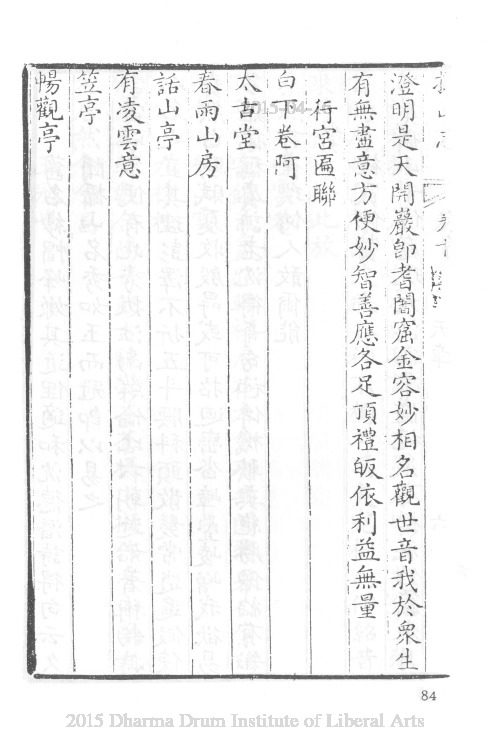 澄明是天開巖卽耆闍窟金容妙相名觀世音我於衆生
有無盡意方便妙智善應各足頂禮皈依利益無量
行宮匾聯
白下卷阿
太古堂
春雨山房
話山亭
有凌雲意
笠亭
暢觀亭
84
2015 Dharma Drum Institute of Liberal Arts